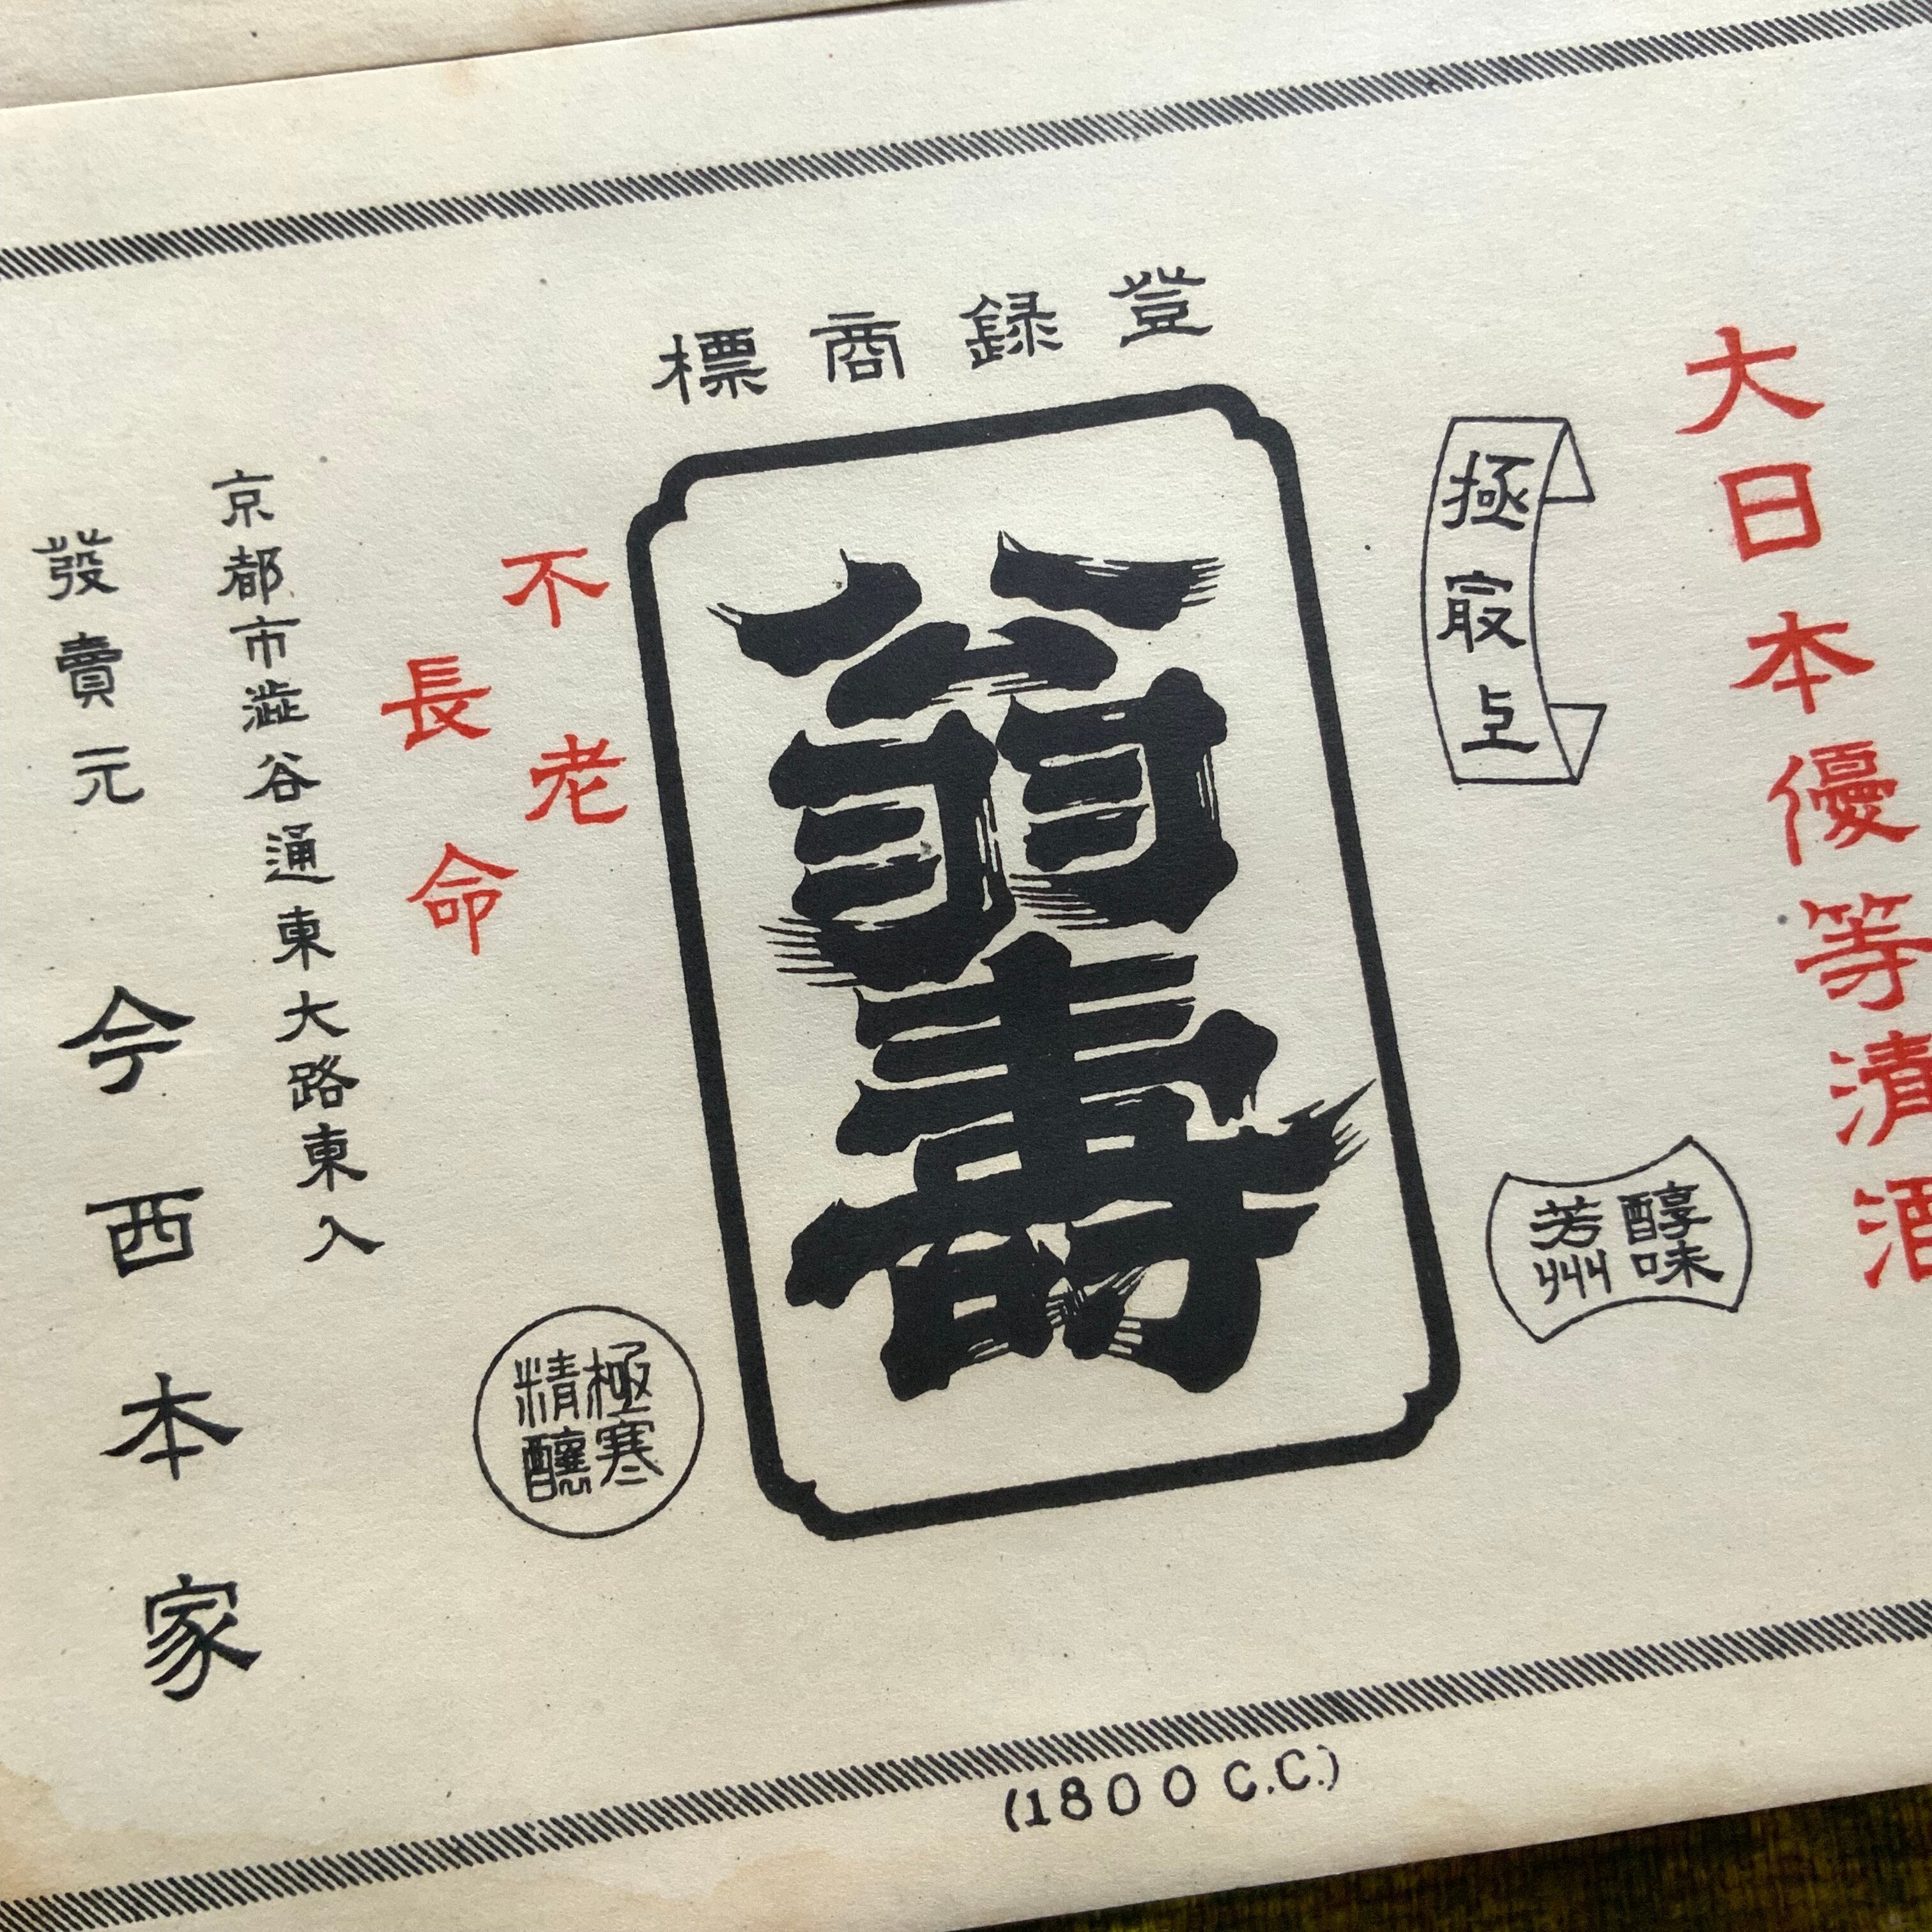 大日本優等清酒
極㝡上
醇味
芳州
登録商標
翁壽
不老
長命
極寒
精釀
京都市澁谷通東大路東入
發賣元 今西本家
(1800 C.C.)